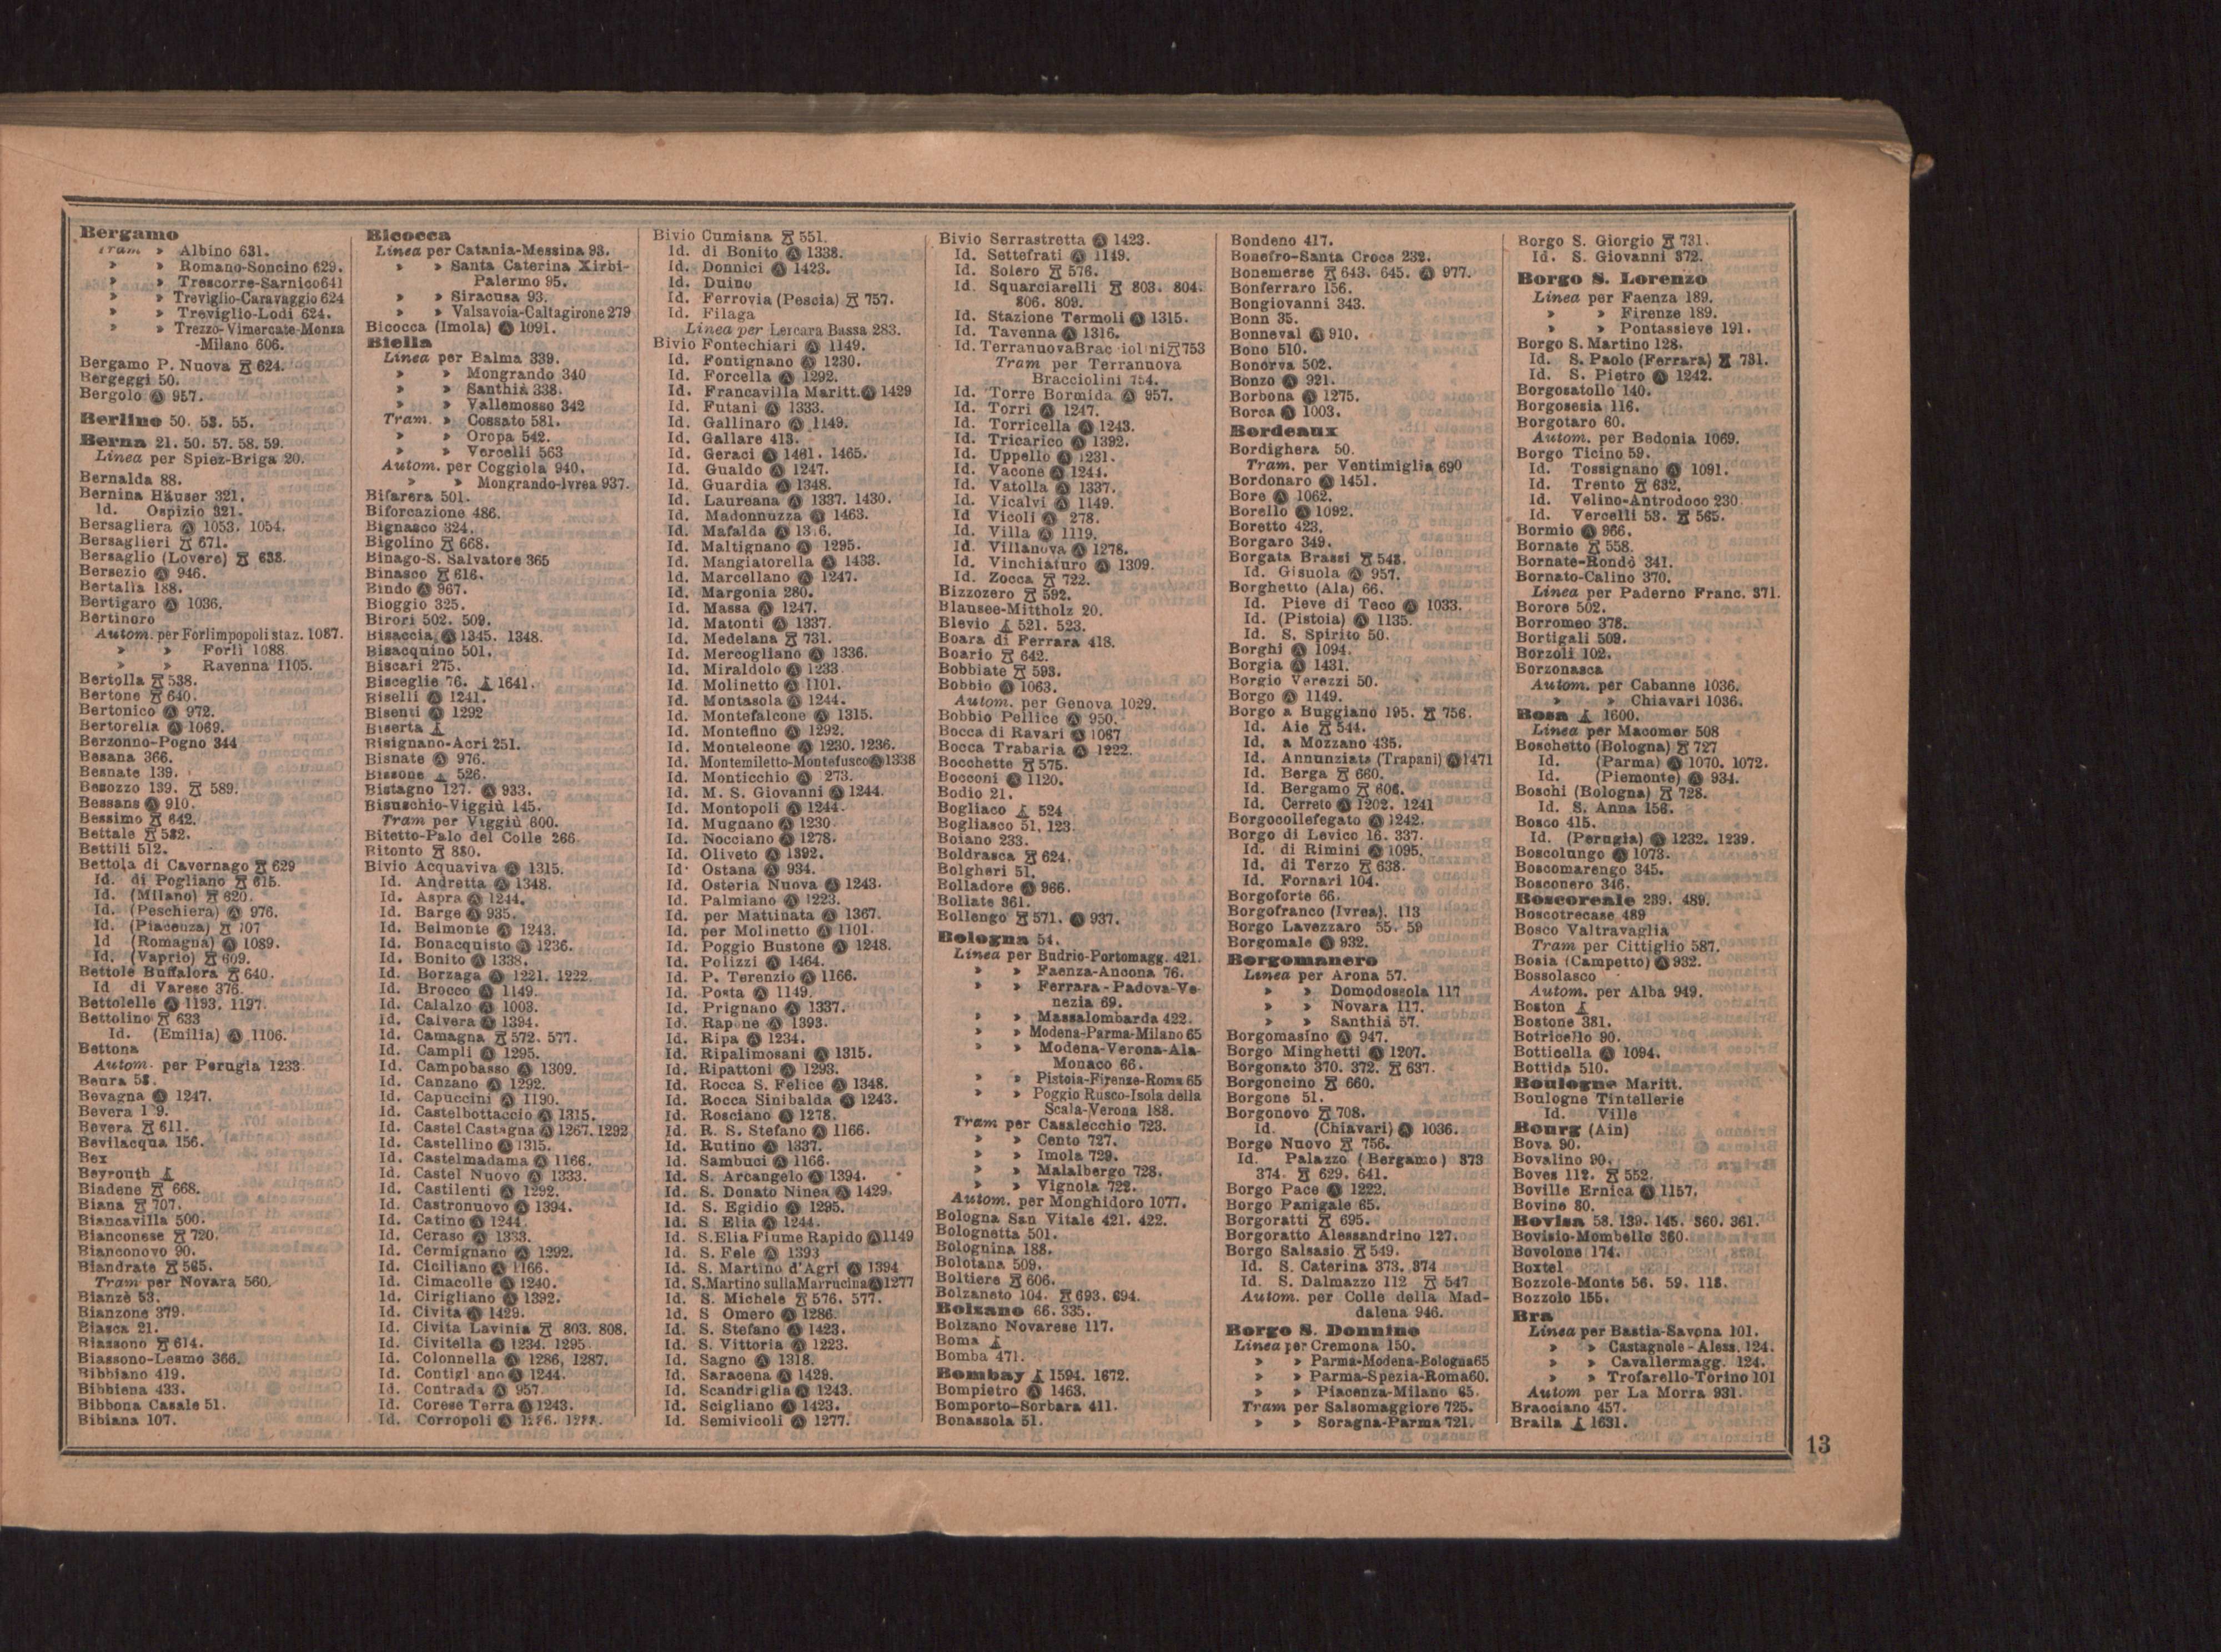 Bergamo
Tram » Albino 631.
» » Romano-Soncino 629.
» » Trescorre-Sarnico 641
» » Treviglio-Caravaggio 624
» » Treviglio-Lodi 624.
» » Trezzo-Vimercate-Monza
-Milano 606.
Bergamo P. Nuova 624.
Bergeggi 50.
Bergolo Ⓐ 957.
Berlino 50. 53. 55.
Berna 21. 50. 57. 58. 59.
Linea per Spiez-Briga 20.
Bernalda 88.
Bernina Häuser 321.
Id. Ospizio 321.
Bersagliera Ⓐ 1053. 1054.
Bersaglieri 671.
Bersaglio (Lovere) 638.
Bersezio Ⓐ 946.
Bertalia 188.
Bertigaro Ⓐ 1036.
Bertinoro
Autom. per Forlimpopoli staz. 1087.
» » Forlì 1088.
» » Ravenna 1105.
Bertolla 538.
Bertone 640.
Bertonico Ⓐ 972.
Bertorella Ⓐ 1069.
Berzonno-Pogno 344
Besana 366.
Besnate 139.
Besozzo 139. 589.
Bessans Ⓐ 910.
Bessimo 642.
Bettale 582.
Bettili 512.
Bettola di Cavernago 629
Id. di Pogliano 615.
Id. (Milano) 620.
Id. (Peschiera) Ⓐ 976.
Id. (Piacenza) 707
Id (Romagna) Ⓐ 1089.
Id. (Vaprio) 609.
Bettole Buffalora 640.
Id di Varese 376.
Bettolelle Ⓐ 1193. 1197.
Bettolino 633
Id. (Emilia) Ⓐ 1106.
Bettona
Autom. per Perugia 1233.
Beura 58.
Bevagna Ⓐ 1247.
Bevera 1 9.
Bevera 611.
Bevilacqua 156.
Bex
Beyrouth
Biadene 668.
Biana 707.
Biancavilla 500.
Bianconese 720.
Bianconovo 90.
Biandrate 565.
Tram per Novara 560.
Bianzè 53.
Bianzone 379.
Biasca 21.
Biassono 614.
Biassono-Lesmo 366.
Bibbiano 419.
Bibbiena 433.
Bibbona Casale 51.
Bibiana 107.
Bicocca
Linea per Catania-Messina 93.
» » Santa Caterina Xirbi-
Palermo 95.
» » Siracusa 93.
» » Valsavoia-Caltagirone 279
Bicocca (Imola) Ⓐ 1091.
Biella
Linea per Balma 339.
» » Mongrando 340
» » Santhià 338.
» » Vallemosso 342
Tram. » Cossato 581.
» » Oropa 542.
» » Vercelli 563
Autom. per Coggiola 940.
» » Mongrando-Ivrea 937.
Bifarera 501.
Biforcazione 486.
Bignasco 324.
Bigolino 668.
Binago-S. Salvatore 365
Binasco 616.
Bindo Ⓐ 967.
Bioggio 325.
Birori 502. 509.
Bisaccia Ⓐ 1345. 1348.
Bisacquino 501.
Biscari 275.
Bisceglie 76. 1641.
Biselli Ⓐ 1241.
Bisenti Ⓐ 1292
Biserta
Bisignano-Acri 251.
Bisnate Ⓐ 976.
Bissone 526.
Bistagno 127. Ⓐ 933.
Bisuschio-Viggiù 145.
Tram per Viggiù 600.
Bitetto-Palo del Colle 266.
Bitonto 880.
Bivio Acquaviva Ⓐ 1315.
Id. Andretta Ⓐ 1348.
Id. Aspra Ⓐ 1244.
Id. Barge Ⓐ 935.
Id. Belmonte Ⓐ 1243.
Id. Bonacquisto Ⓐ 1236.
Id. Bonito Ⓐ 1338.
Id. Borzaga Ⓐ 1221. 1222.
Id. Brocco Ⓐ 1149.
Id. Calalzo Ⓐ 1003.
Id. Calvera Ⓐ 1394.
Id. Camagna 572. 577.
Id. Campli Ⓐ 1295.
Id. Campobasso Ⓐ 1309.
Id. Canzano Ⓐ 1292.
Id. Capuccini Ⓐ 1190.
Id. Castelbottaccio Ⓐ 1315.
Id. Castel Castagna Ⓐ 1267. 1292
Id. Castellino Ⓐ 1315.
Id. Castelmadama Ⓐ 1166.
Id. Castel Nuovo Ⓐ 1333.
Id. Castilenti Ⓐ 1292.
Id. Castronuovo Ⓐ 1394.
Id. Catino Ⓐ 1244
Id. Ceraso Ⓐ 1333.
Id. Cermignano Ⓐ 1292.
Id. Ciciliano Ⓐ 1166.
Id. Cimacolle Ⓐ 1240.
Id. Cirigliano Ⓐ 1392.
Id. Civita Ⓐ 1429.
Id. Civita Lavinia 803. 808.
Id. Civitella Ⓐ 1234. 1295.
Id. Colonnella Ⓐ 1286, 1287.
Id. Contigl ano Ⓐ 1244.
Id. Contrada Ⓐ 957.
Id. Corese Terra Ⓐ 1243.
Id. Corropoli Ⓐ
Bivio Cumiana 551.
Id. di Bonito Ⓐ 1338.
Id. Donnici Ⓐ 1423.
Id. Duino
Id. Ferrovia (Pescia) 757.
Id. Filaga
Linea per Lercara Bassa 283.
Bivio Fontechiari Ⓐ 1149.
Id. Fontignano Ⓐ 1230.
Id. Forcella Ⓐ 1292.
Id. Francavilla Maritt. Ⓐ 1429
Id. Futani Ⓐ 1333.
Id. Gallinaro Ⓐ 1149.
Id. Gallare 413.
Id. Geraci Ⓐ 1461. 1465.
Id. Gualdo Ⓐ 1247.
Id. Guardia Ⓐ 1348.
Id. Laureana Ⓐ 1337. 1430.
Id. Madonnuzza Ⓐ 1463.
Id. Mafalda Ⓐ 13 6.
Id. Maltignano Ⓐ 1295.
Id. Mangiatorella Ⓐ 1433.
Id. Marcellano Ⓐ 1247.
Id. Margonia 280.
Id. Massa Ⓐ 1247.
Id. Matonti Ⓐ 1337.
Id. Medelana 731.
Id. Mercogliano Ⓐ 1336.
Id. Miraldolo Ⓐ 1233
Id. Molinetto Ⓐ 1101.
Id. Montasola Ⓐ 1244.
Id. Montefalcone Ⓐ 1315.
Id. Montefino Ⓐ 1292.
Id. Monteleone Ⓐ 1230. 1236.
Id. Montemiletto-Montefusco Ⓐ 1338
Id. Monticchio Ⓐ 273.
Id. M. S. Giovanni Ⓐ 1244.
Id. Montopoli Ⓐ 1244.
Id. Mugnano Ⓐ 1230
Id. Nocciano Ⓐ 1278.
Id. Oliveto Ⓐ 1392.
Id. Ostana Ⓐ 934.
Id. Osteria Nuova Ⓐ 1243.
Id. Palmiano Ⓐ 1223.
Id. per Mattinata Ⓐ 1367.
Id. per Molinetto Ⓐ 1101.
Id. Poggio Bustone Ⓐ 1248.
Id. Polizzi Ⓐ 1464.
Id. P. Terenzio Ⓐ 1166.
Id. Posta Ⓐ 1149.
Id. Prignano Ⓐ 1337.
Id. Rapone Ⓐ 1393.
Id. Ripa Ⓐ 1234.
Id. Ripalimosani Ⓐ 1315.
Id. Ripattoni Ⓐ 1293.
Id. Rocca S. Felice Ⓐ 1348.
Id. Rocca Sinibalda Ⓐ 1243.
Id. Rosciano Ⓐ 1278.
Id. R. S. Stefano Ⓐ 1166.
Id. Rutino Ⓐ 1337.
Id. Sambuci Ⓐ 1166.
Id. S. Arcangelo Ⓐ 1394.
Id. S. Donato Ninea Ⓐ 1429.
Id. S. Egidio Ⓐ 1295.
Id. S Elia Ⓐ 1244.
Id. S.Elia Fiume Rapido Ⓐ 1149
Id. S. Fele Ⓐ 1393
Id. S. Martino d'Agri Ⓐ 1394
Id. S.Martino sulla Marrucina Ⓐ 1277
Id. S. Michele 576. 577.
Id. S Omero Ⓐ 1286.
Id. S. Stefano Ⓐ 1423.
Id. S. Vittoria Ⓐ 1223.
Id. Sagno Ⓐ 1318.
Id. Saracena Ⓐ 1429.
Id. Scandriglia Ⓐ 1243.
Id. Scigliano Ⓐ 1423.
Id. Semivicoli Ⓐ 1277.
Bivio Serrastretta Ⓐ 1423.
Id. Settefrati Ⓐ 1149.
Id. Solero 576.
Id. Squarciarelli 803. 804.
806. 809.
Id. Stazione Termoli Ⓐ 1315.
Id. Tavenna Ⓐ 1316.
Id. Terranuova Brac iol ni 753
Tram per Terranuova
Bracciolini 754.
Id. Torre Bormida Ⓐ 957.
Id. Torri Ⓐ 1247.
Id. Torricella Ⓐ 1243.
Id. Tricarico Ⓐ 1392.
Id. Uppello Ⓐ 1231.
Id. Vacone Ⓐ 1244.
Id. Vatolla Ⓐ 1337.
Id. Vicalvi Ⓐ 1149.
Id Vicoli Ⓐ 278.
Id. Villa Ⓐ 1119.
Id. Villanova Ⓐ 1278.
Id. Vinchiaturo Ⓐ 1309.
Id. Zocca 722.
Bizzozero 592.
Blausee-Mittholz 20.
Blevio 521. 523.
Boara di Ferrara 418.
Boario 642.
Bobbiate 593.
Bobbio Ⓐ 1063.
Autom. per Genova 1029.
Bobbio Pellice Ⓐ 950.
Bocca di Ravari Ⓐ 1087
Bocca Trabaria Ⓐ 1222.
Bocchette 575.
Bocconi Ⓐ 1120.
Bodio 21.
Bogliaco 524
Bogliasco 51, 123.
Boiano 233.
Boldrasca 624.
Bolgheri 51.
Bolladore Ⓐ 966.
Bollate 361.
Bollengo 571. Ⓐ 937.
Bologna 54.
Linea per Budrio-Portomagg. 421.
» » Faenza-Ancona 76.
» » Ferrara-Padova-Ve-
nezia 69.
» » Massalombarda 422.
» » Modena-Parma-Milano 65
» » Modena-Verona-Ala-
Monaco 66.
» » Pistoia-Firenze-Roma 65
» » Poggio Rusco-Isola della
Scala-Verona 188.
Tram per Casalecchio 723.
» » Cento 727.
» » Imola 729.
» » Malalbergo 728.
» » Vignola 722.
Autom. per Monghidoro 1077.
Bologna San Vitale 421. 422.
Bolognetta 501.
Bolognina 188.
Bolotana 509.
Boltiere 606.
Bolzaneto 104. 693. 694.
Bolzano 66. 335.
Bolzano Novarese 117.
Boma
Bomba 471.
Bombay 1594. 1672.
Bompietro Ⓐ 1463.
Bomporto-Sorbara 411.
Bonassola 51.
Bondeno 417.
Bonefro-Santa Croce 232.
Bonemerse 643. 645. Ⓐ 977.
Bonferraro 156.
Bongiovanni 343.
Bonn 35.
Bonneval Ⓐ 910.
Bono 510.
Bonorva 502.
Bonzo Ⓐ 921.
Borbona Ⓐ 1275.
Borca Ⓐ 1003.
Bordeaux
Bordighera 50.
Tram. per Ventimiglia 690
Bordonaro Ⓐ 1451.
Bore Ⓐ 1062.
Borello Ⓐ 1092.
Boretto 423.
Borgaro 349.
Borgata Brassi 548.
Id. Gisuola Ⓐ 957.
Borghetto (Ala) 66.
Id. Pieve di Teco Ⓐ 1033.
Id. (Pistoia) Ⓐ 1135.
Id. S. Spirito 50.
Borghi Ⓐ 1094.
Borgia Ⓐ 1431.
Borgio Verezzi 50.
Borgo Ⓐ 1149.
Borgo a Buggiano 195. 756.
Id. Aie 544.
Id. a Mozzano 435.
Id. Annunziata (Trapani) Ⓐ 1471
Id. Berga 660.
Id. Bergamo 606.
Id. Cerreto Ⓐ 1202. 1241
Borgocollefegato Ⓐ 1242.
Borgo di Levico 16. 337.
Id. di Rimini Ⓐ 1095.
Id. di Terzo 638.
Id. Fornari 104.
Borgoforte 66.
Borgofranco (Ivrea). 113
Borgo Lavezzaro 55. 59
Borgomale Ⓐ 932.
Borgomanero
Linea per Arona 57.
» » Domodossola 117
» » Novara 117.
» » Santhià 57.
Borgomasino Ⓐ 947.
Borgo Minghetti Ⓐ 1207.
Borgonato 370. 372. 637.
Borgoncino 660.
Borgone 51.
Borgonovo 708.
Id. (Chiavari) Ⓐ 1036.
Borgo Nuovo 756.
Id. Palazzo (Bergamo) 373
374. 629. 641.
Borgo Pace Ⓐ 1222.
Borgo Panigale 65.
Borgoratti 695.
Borgoratto Alessandrino 127.
Borgo Salsasio 549.
Id. S. Caterina 373. 374
Id. S. Dalmazzo 112 547
Autom. per Colle della Mad-
dalena 946.
Borgo S. Donnino
Linea per Cremona 150.
» » Parma-Modena-Bologna 65
» » Parma-Spezia-Roma 60.
» » Piacenza-Milano 65.
Tram per Salsomaggiore 725.
» » Soragna-Parma 721.
Borgo S. Giorgio 731.
Id. S. Giovanni 372.
Borgo S. Lorenzo
Linea per Faenza 189.
» » Firenze 189.
» » Pontassieve 191.
Borgo S. Martino 128.
Id. S. Paolo (Ferrara) 731.
Id. S. Pietro Ⓐ 1242.
Borgosatollo 140.
Borgosesia 116.
Borgotaro 60.
Autom. per Bedonia 1069.
Borgo Ticino 59.
Id. Tossignano Ⓐ 1091.
Id. Trento 632.
Id. Velino-Antrodoco 230.
Id. Vercelli 53. 565.
Bormio Ⓐ 966.
Bornate 558.
Bornate-Rondò 341.
Bornato-Calino 370.
Linea per Paderno Franc. 371.
Borore 502.
Borromeo 378.
Bortigali 509.
Borzoli 102.
Borzonasca
Autom. per Cabanne 1036.
» » Chiavari 1036.
Bosa 1600.
Linea per Macomer 508
Boschetto (Bologna) 727
Id. (Parma) Ⓐ 1070. 1072.
Id. (Piemonte) Ⓐ 934.
Boschi (Bologna) 728.
Id. S. Anna 156.
Bosco 415.
Id. (Perugia) Ⓐ 1232. 1239.
Boscolungo Ⓐ 1073.
Boscomarengo 345.
Bosconero 346.
Boscoreale 239. 489.
Boscotrecase 489
Bosco Valtravaglia
Tram per Cittiglio 587.
Bosia (Campetto) Ⓐ 932.
Bossolasco
Autom. per Alba 949.
Boston
Bostone 381.
Botricello 90.
Botticella Ⓐ 1094.
Bottida 510.
Boulogne Maritt.
Boulogne Tintellerie
Id. Ville
Bourg (Ain)
Bova 90.
Bovalino 90.
Boves 112. 552.
Boville Ernica Ⓐ 1157.
Bovino 80.
Bovisa 58. 139. 145. 360. 361.
Bovisio-Mombello 360.
Bovolone 174.
Boxtel
Bozzole-Monte 56. 59. 118.
Bozzolo 155.
Bra
Linea per Bastia-Savona 101.
» » Castagnole-Aless. 124.
» » Cavallermagg. 124.
» » Trofarello-Torino 101
Autom per La Morra 931.
Bracciano 457.
Braila 1631.
13